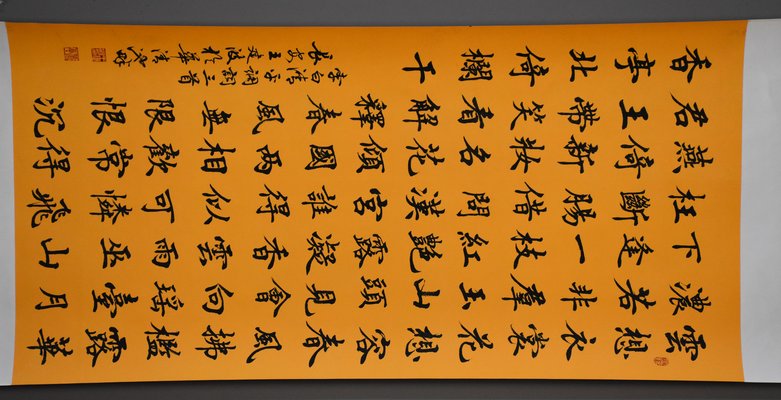 雲想衣裳花想容春風拂檻露華
濃若非群玉山頭見會向瑤臺月
下逢一枝紅艷露凝香雲雨巫山
枉斷腸借問漢宮誰得似可憐飛
燕倚新妝名花傾國兩相歡常得
君王帶笑看解釋春風無限恨沉
香亭北倚欄干
李白清平調詞三首
長安王波於華清池畔